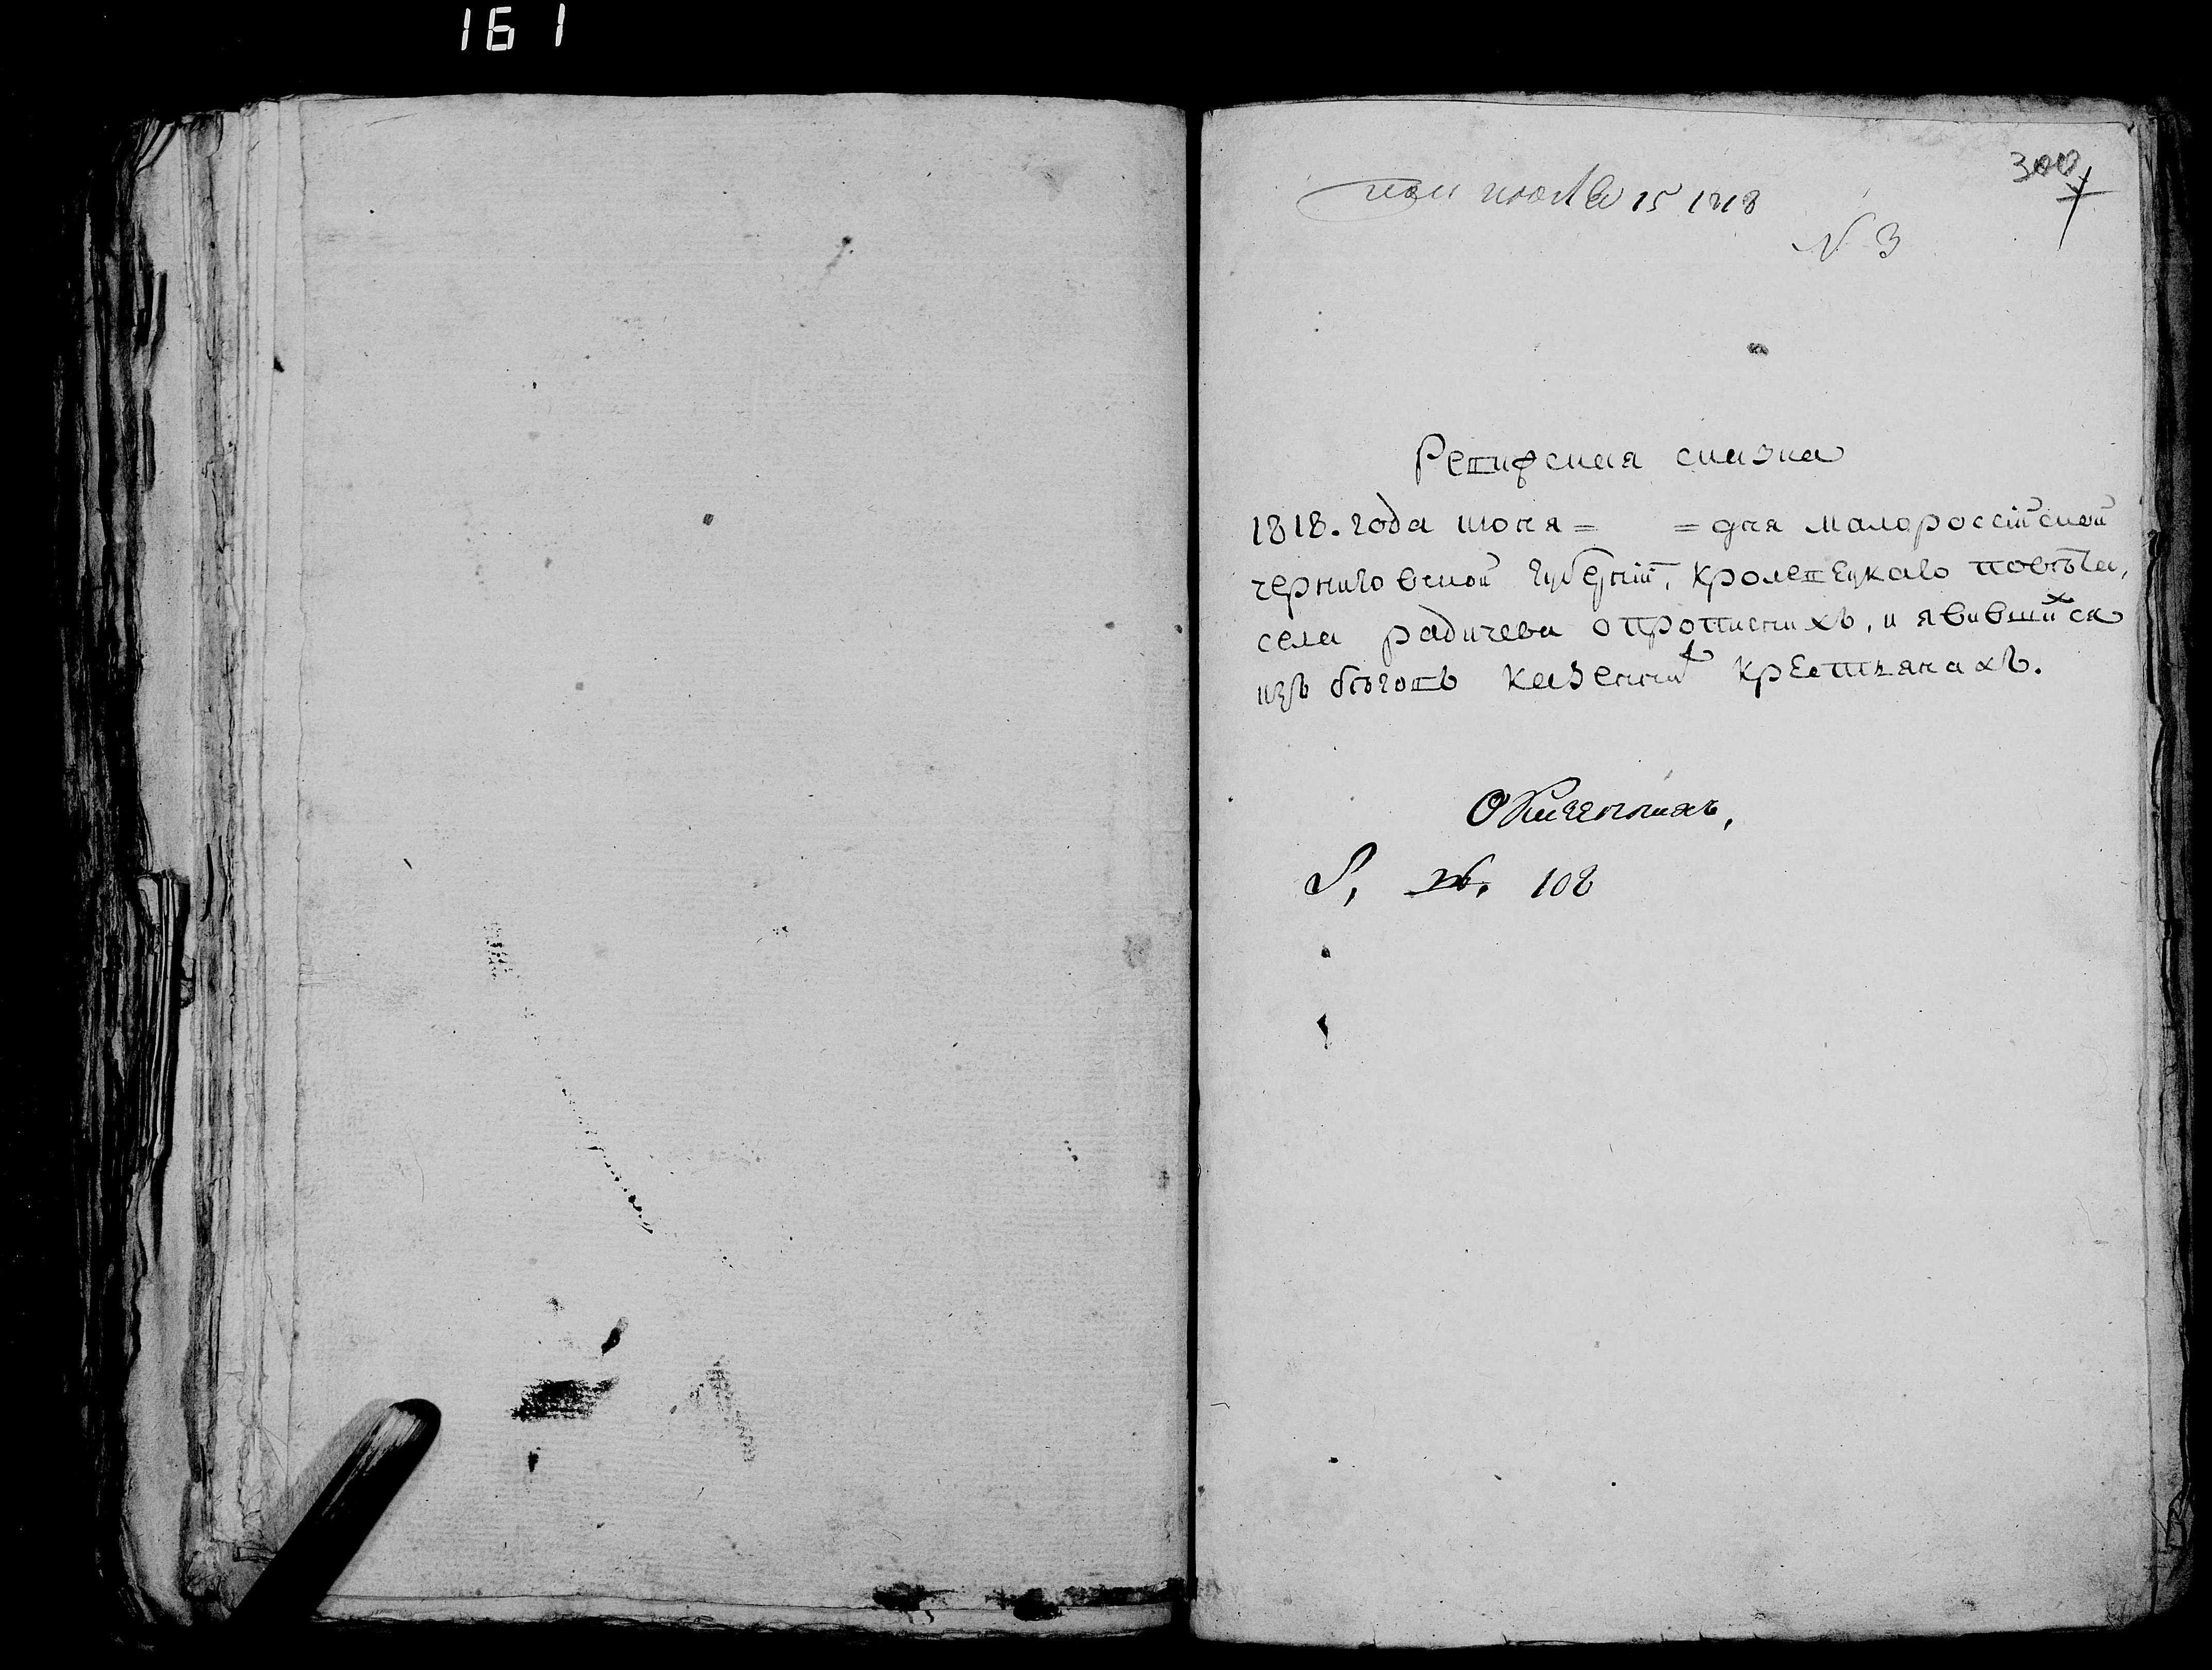 161
300
июля 15 1818
N 3
Ревизская сказка
1818. года июня = = дня малороссійской
черниговской губерніи, кролевецкаго повѣта,
села радичева о прописнихъ, и явившихся
изъ бѣговъ казеннихъ крестьянахъ.
О казеннихъ,
108